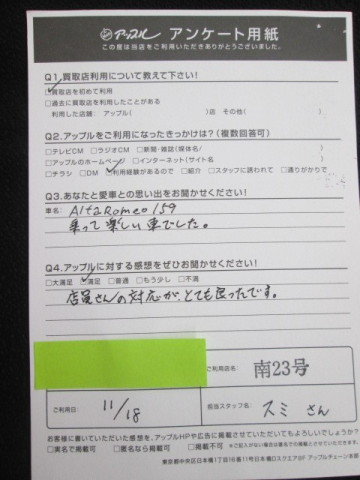 アップル アンケート用紙
この度は当店をご利用いただきありがとうございました。
Q1.買取店利用について教えて下さい!
☑買取店を初めて利用
□過去に買取店を利用したことがある
利用した店舗: アップル( )店 その他( )
Q2.アップルをご利用になったきっかけは?(複数回答可)
□テレビCM □ラジオCM □新聞・雑誌(媒体名/ )
□アップルのホームページ □インターネット(サイト名 )
□チラシ □DM ☑利用経験があるので □紹介 □スタッフに誘われて □通りがかりで
Q3.あなたと愛車との思い出をお聞かせください!
車名/ AlfaRomeo 159
乗って楽しい車でした。
Q4.アップルに対する感想をぜひお聞かせください!
□大満足 ☑満足 □普通 □もう少し □不満
店員さんの対応が、とても良ったです。
ご利用店名: 南23号
ご利用日: 11/18
担当スタッフ名: スミ さん
お客様に書いていただいた感想を、アップルHPや広告に掲載させていただいてもよろしいでしょうか?
□実名で掲載可 □匿名なら掲載可 □掲載不可 ※ご記入がない場合は匿名での掲載とさせていただきます。
東京都中央区日本橋1丁目16番11号日本橋Dスクエア9F アップルチェーン本部